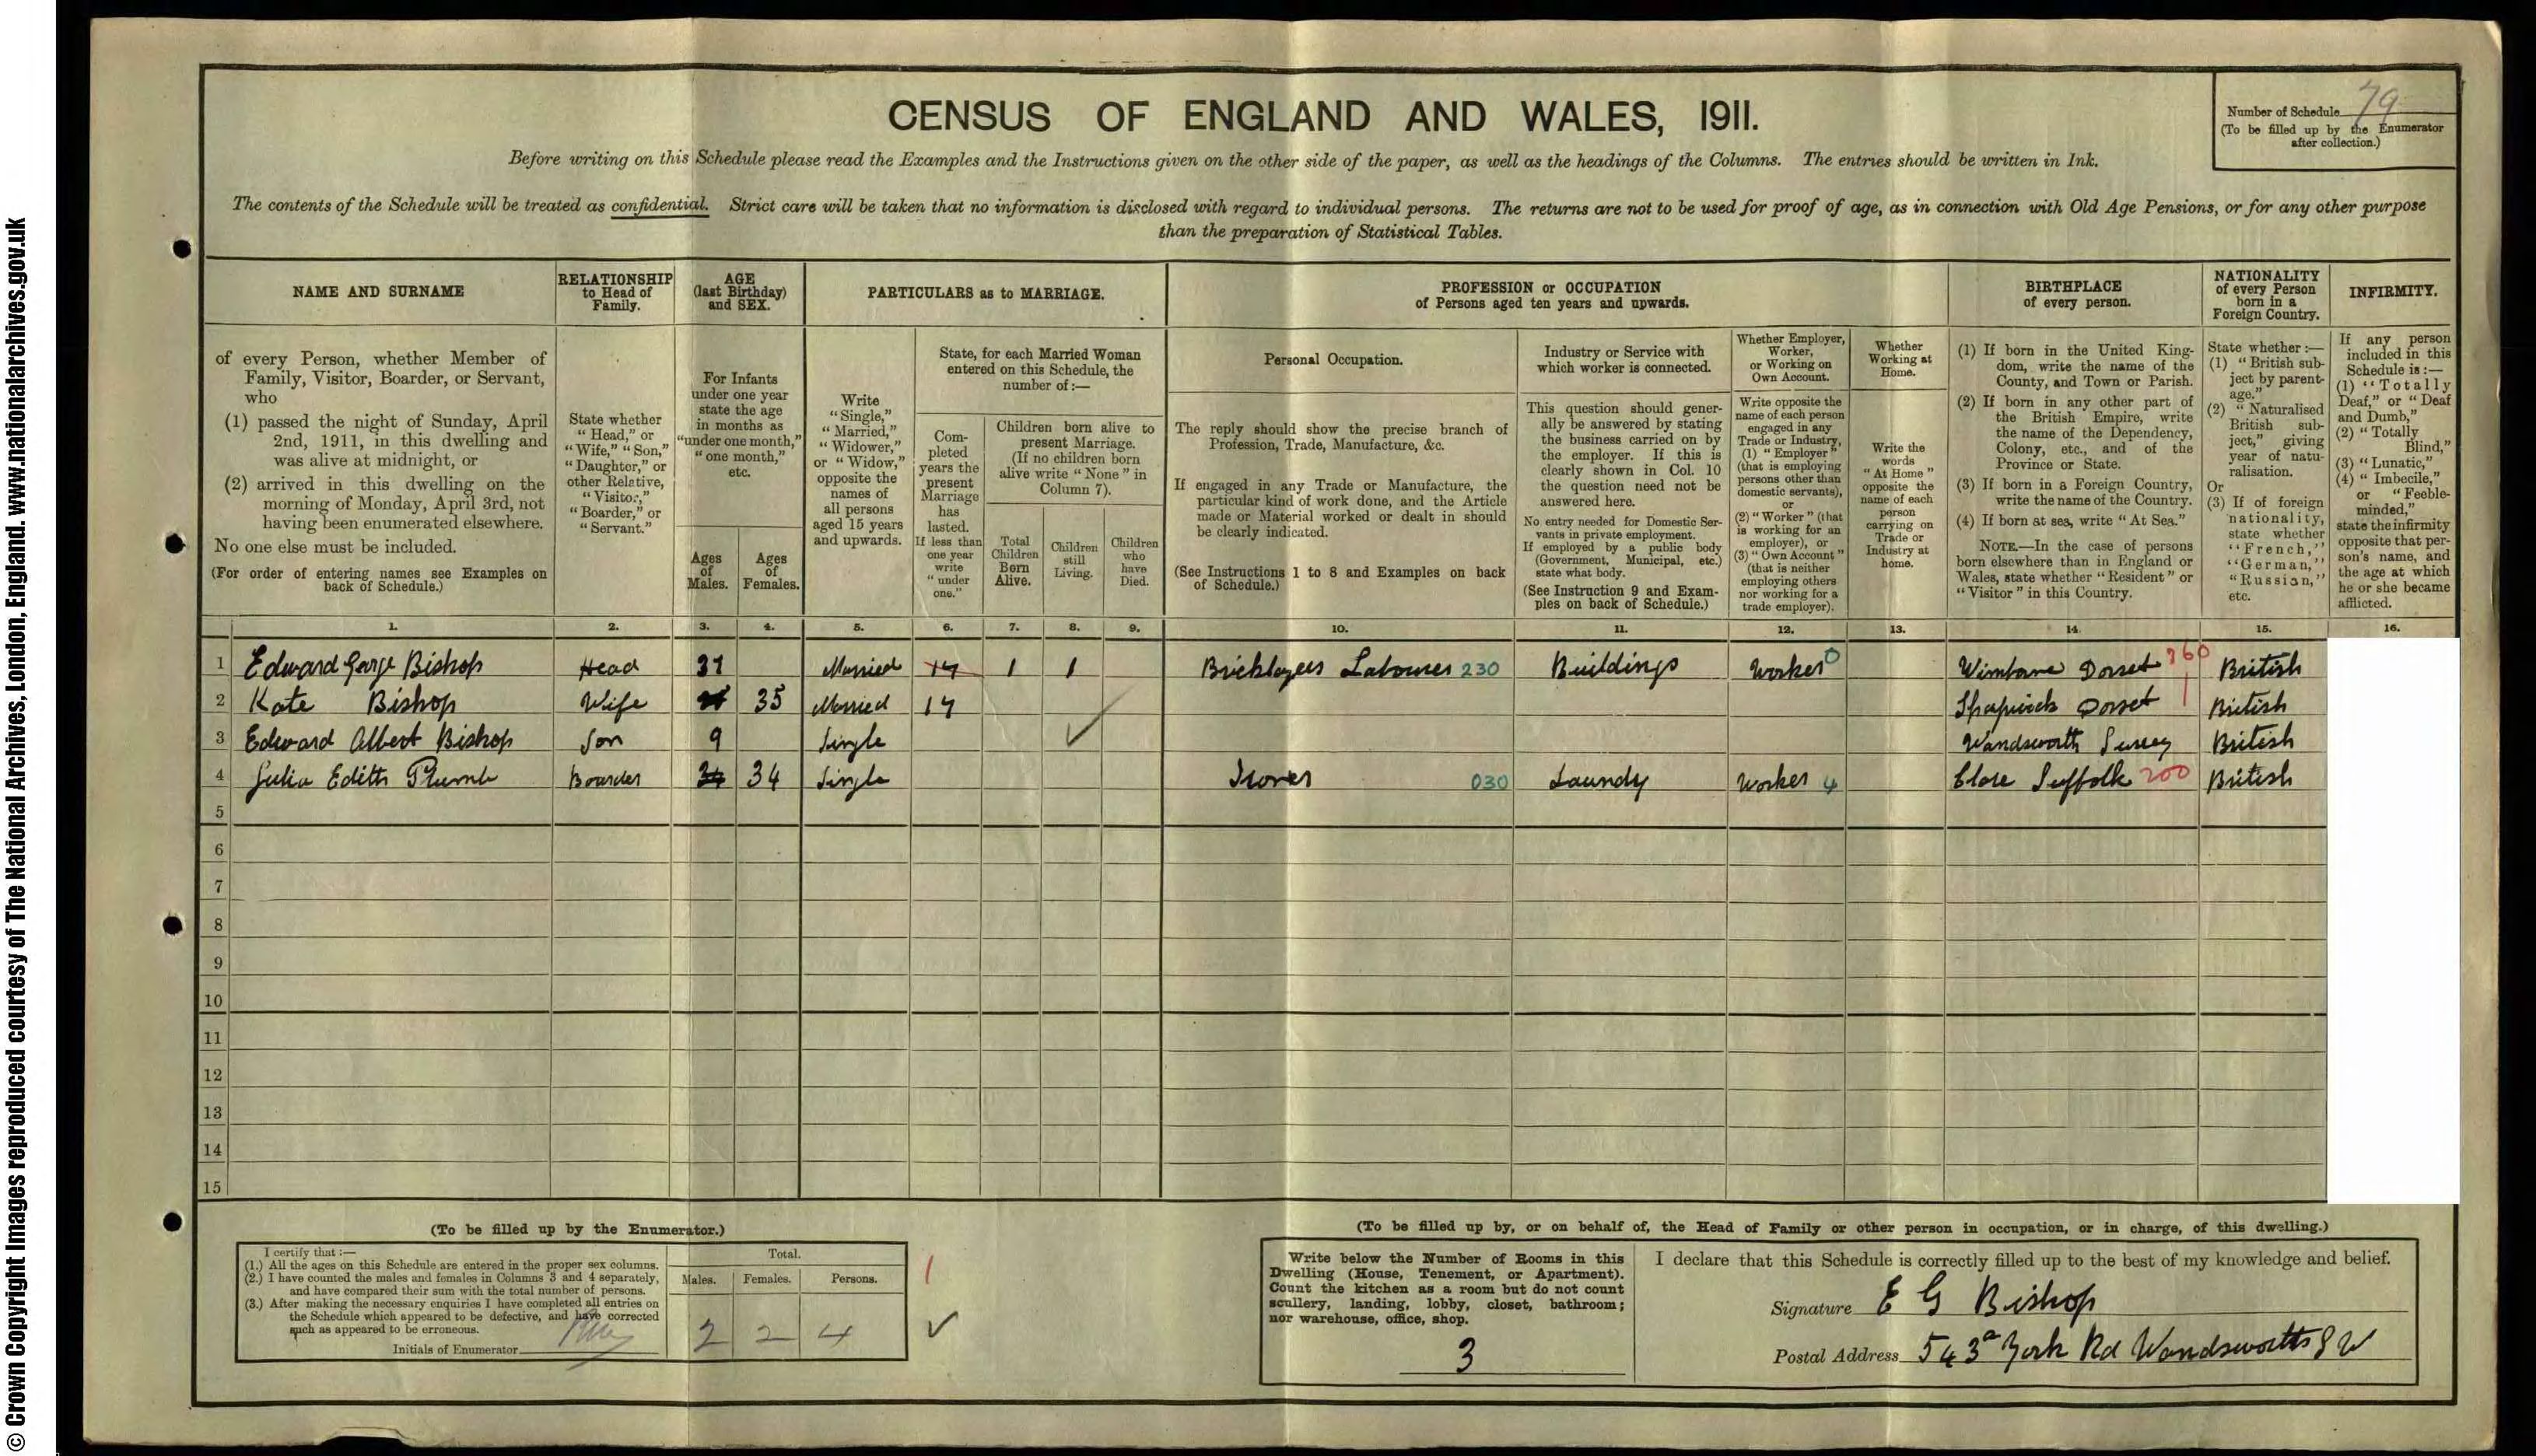 © Crown Copyright Images reproduced courtesy of The National Archives, London, England. www.nationalarchives.gov.uk
CENSUS OF ENGLAND AND WALES, 1911.
Number of Schedule 79
(To be filled up by the Enumerator
after collection.)
Before writing on this Schedule please read the Examples and the Instructions given on the other side of the paper, as well as the headings of the Columns. The entries should be written in Ink.
The contents of the Schedule will be treated as confidential. Strict care will be taken that no information is disclosed with regard to individual persons. The returns are not to be used for proof of age, as in connection with Old Age Pensions, or for any other purpose
than the preparation of Statistical Tables.
NAME AND SURNAME
RELATIONSHIP
to Head of
Family.
AGE
(last Birthday)
and SEX.
PARTICULARS as to MARRIAGE.
PROFESSION or OCCUPATION
of Persons aged ten years and upwards.
BIRTHPLACE
of every person.
NATIONALITY
of every Person
born in a
Foreign Country.
INFIRMITY.
of every Person, whether Member of
Family, Visitor, Boarder, or Servant,
who
(1) passed the night of Sunday, April
2nd, 1911, in this dwelling and
was alive at midnight, or
(2) arrived in this dwelling on the
morning of Monday, April 3rd, not
having been enumerated elsewhere.
No one else must be included.
(For order of entering names see Examples on
back of Schedule.)
State whether
"Head," or
"Wife," "Son,"
"Daughter," or
other Relative,
"Visitor,"
"Boarder," or
"Servant."
For Infants
under one year
state the age
in months as
"under one month,"
"one month,"
etc.
Ages
of
Males.
Ages
of
Females.
Write
"Single,"
"Married,"
"Widower,"
or "Widow,"
opposite the
names of
all persons
aged 15 years
and upwards.
State, for each Married Woman
entered on this Schedule, the
number of:—
Com-
pleted
years the
present
Marriage
has
lasted.
If less than
one year
write
"under
one."
Children born alive to
present Marriage.
(If no children born
alive write "None" in
Column 7).
Total
Children
Born
Alive.
Children
still
Living.
Children
who
have
Died.
Personal Occupation.
The reply should show the precise branch of
Profession, Trade, Manufacture, &c.
If engaged in any Trade or Manufacture, the
particular kind of work done, and the Article
made or Material worked or dealt in should
be clearly indicated.
(See Instructions 1 to 8 and Examples on back
of Schedule.)
Industry or Service with
which worker is connected.
This question should gener-
ally be answered by stating
the business carried on by
the employer. If this is
clearly shown in Col. 10
the question need not be
answered here.
No entry needed for Domestic Ser-
vants in private employment.
If employed by a public body
(Government, Municipal, etc.)
state what body.
(See Instruction 9 and Exam-
ples on back of Schedule.)
Whether Employer,
Worker,
or Working on
Own Account.
Write opposite the
name of each person
engaged in any
Trade or Industry,
(1) "Employer"
(that is employing
persons other than
domestic servants),
or
(2) "Worker" (that
is working for an
employer), or
(3) "Own Account"
(that is neither
employing others
nor working for a
trade employer).
Whether
Working at
Home.
Write the
words
"At Home"
opposite the
name of each
person
carrying on
Trade or
Industry at
home.
(1) If born in the United King-
dom, write the name of the
County, and Town or Parish.
(2) If born in any other part of
the British Empire, write
the name of the Dependency,
Colony, etc., and of the
Province or State.
(3) If born in a Foreign Country,
write the name of the Country.
(4) If born at sea, write "At Sea."
NOTE.—In the case of persons
born elsewhere than in England or
Wales, state whether "Resident" or
"Visitor" in this Country.
State whether:—
(1) "British sub-
ject by parent-
age."
(2) "Naturalised
British sub-
ject," giving
year of natu-
ralisation.
Or
(3) If of foreign
nationality,
state whether
"French,"
"German,"
"Russian,"
etc.
If any person
included in this
Schedule is:—
(1) "Totally
Deaf," or "Deaf
and Dumb,"
(2) "Totally
Blind,"
(3) "Lunatic,"
(4) "Imbecile,"
or "Feeble-
minded,"
state the infirmity
opposite that per-
son's name, and
the age at which
he or she became
afflicted.
1. 2. 3. 4. 5. 6. 7. 8. 9. 10. 11. 12. 13. 14. 15. 16.
1 Edward George Bishop Head 37 Married 14 1 1 Bricklayers Labourer 230 Buildings Worker 0 Wimborne Dorset 360 British
2 Kate Bishop Wife 35 Married 14 Shapwick Dorset British
3 Edward Albert Bishop Son 9 Single Wandsworth Surrey British
4 Julia Edith Plumb Boarder 34 34 Single Ironer 030 Laundy Worker 4 Clare Suffolk 200 British
5
6
7
8
9
10
11
12
13
14
15
(To be filled up by the Enumerator.)
I certify that:—
(1.) All the ages on this Schedule are entered in the proper sex columns.
(2.) I have counted the males and females in Columns 3 and 4 separately,
and have compared their sum with the total number of persons.
(3.) After making the necessary enquiries I have completed all entries on
the Schedule which appeared to be defective, and have corrected
such as appeared to be erroneous.
Initials of Enumerator
Total.
Males. Females. Persons.
2 2 4
(To be filled up by, or on behalf of, the Head of Family or other person in occupation, or in charge, of this dwelling.)
Write below the Number of Rooms in this
Dwelling (House, Tenement, or Apartment).
Count the kitchen as a room but do not count
scullery, landing, lobby, closet, bathroom;
nor warehouse, office, shop.
3
I declare that this Schedule is correctly filled up to the best of my knowledge and belief.
Signature E G Bishop
Postal Address 543a York Rd Wandsworth S W